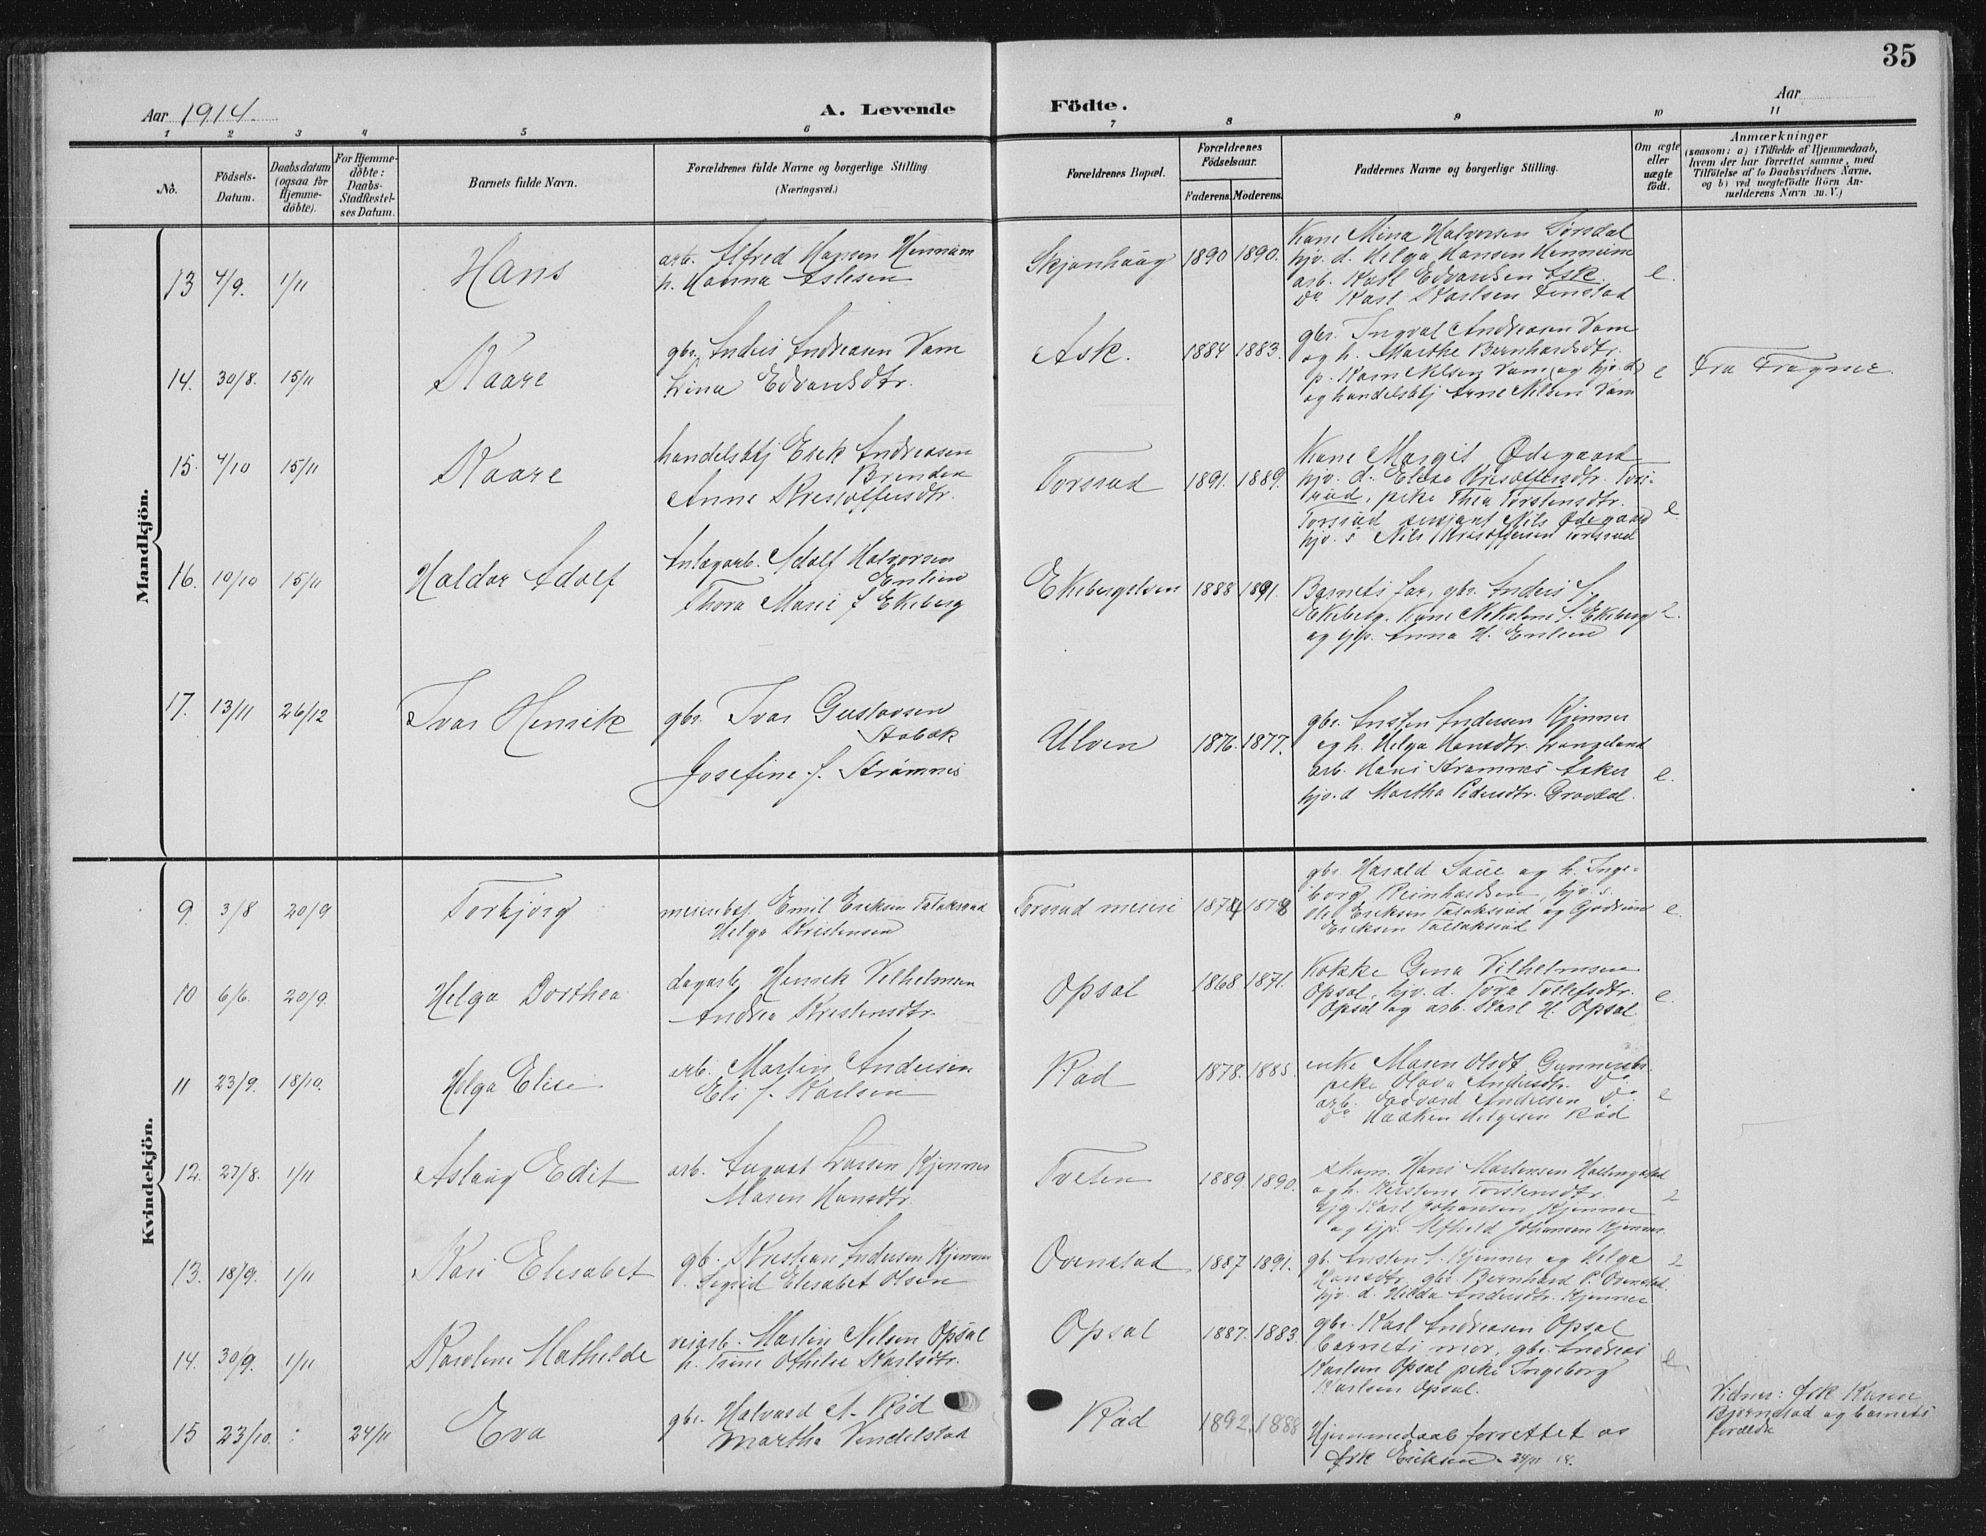 35
Aar 1914.
A. Levende Födte.
Aar
1 2 3 4 5 6 7 8 9 10 11
No.
Födsels-Datum.
Daabsdatum (ogsaa for Hjemme-döbte).
For Hjemme-döbte: Daabs-Stadfæstel-ses Datum.
Barnets fulde Navn.
Forældrenes fulde Navne og borgerlige Stilling (Næringsvei.)
Forældrenes Bopæl.
Forældrenes Födselsaar.
Faderens. Moderens.
Faddernes Navne og borgerlige Stilling.
Om ægte eller uægte födt.
Anmærkninger
(saasom: a) i Tilfælde af Hjemmedaab, hvem der har forrettet samme, med Tilföielse af to Daabsvidners Navne, og b) ved uægtefödte Börn An-melderens Navn m. V.)
Mandkjön.
13 4/9. 1/11 Hans
arb. Alfred Hansen Hennum
h. Hanna Aslesen
Skjønhaug 1890 1890.
Kone Mina Halvorsen Sørsdal
hjv. d. Helga Hansen Hennum
arb. Karl Edvardsen Ask
Do Karl Karlsen Finstad
e.
14. 30/8. 15/11 Kaare
gbr. Anders Andreasen Vam
Lina Edvardsdtr.
Ask. 1884 1883.
gbr. Ingval Andreasen Vam
og h. Marthe Bernhardsdtr.
p. Karn Nilsen Vam (og hjv. d)
og handelsbtj Arne Nilsen Vam
e Fra Frogner.
15. 4/10 15/11 Kaare
handelsbtj Erik Andreasen
Brenden
Anne Kristoffersdtr.
Torsrud 1891. 1889.
Kone Margit Ødegaard
hjv. d. Elise Kristoffersdtr. Tors-
rud, pike Thea Torstensdtr.
Torsrud sersjant Nils Ødegaard
hjv. s Nils Kristoffersen Torsrud
e.
16. 10/10 15/11 Haldor Adolf
Anlægarb. Adolf Halvorsen
Enlien
Thora Marie f Ekeberg
Ekebergelven 1888 1891.
Barnets far, gbr. Anders S.
Ekeberg, Kone Nikoline S. Ekeberg
og pp. Anna H. Enlien
17. 13/11 26/12 Ivar Henrik
gbr. Ivar Gustavsen
Stabæk
Josefine f. Strømnes
Ulven 1876. 1877.
gbr. Ansten Andersen Kjenner
og h. Helga Hansdtr. Langeland
arb. Hans Strømnes Asker
hjv. d Martha Pedersdtr. Gravdal.
e.
Kvindekjön.
9. 3/8 20/9 Torbjørg
meieribest. Emil Eriksen Tallaksrud
Helga Kristensen
Torsrud meieri 1874 1878
gbr. Harald Saue og h. Inge-
borg Reinhardsen, hjv. s.
Ole Eriksen Tallaksrud og Gudrun
Eriksen Tallaksrud
e.
10 6/6. 20/9. Helga Dorthea
dagarb. Henrik Vilhelmsen
Andrea Kristensdtr.
Opsal 1868 1871.
Kokke Gina Vilhelmsen
Opsal, hjv. d. Tora Tollefsdtr.
Opsal og arb. Karl H. Opsal
e.
11 23/9. 18/10. Helga Elise
arb. Martin Andersen
Eli f. Karlsen
Rød 1878. 1885.
enke Maren Olsdt. Gunnersbr.
pike Olava Andersdtr. Do
arb. Edvard Andersen Do.
Do Haaken Helgesen Rød
e
12. 27/8. 1/11 Aslaug Edit
arb. August Larsen Kjenner
Maren Hansdtr.
Tveten 1889 1890.
skom. Hans Mortensen Hallingstad
og h. Kristine Torstensdtr.
gg Karl Johansen Kjenner
og pp. Alfhild Johansen Kjenner
13. 18/9. 1/11 Kari Elisabet
gb. Kristian Andersen Kjenner
Sigrid Elisabet Olsen
Ovenstad 1887 1891.
gb. Ansten S. Kjenner og Helga
Hansdtr, gbr. Bernhard P. Ovenstad.
hjv. d. Hilda Andersdtr. Kjenner
14. 30/9. 1/11 Karoline Mathilde
veiarb. Martin Nilsen Opsal
h. Trine Othilie Karlsdtr.
Opsal 1887. 1883.
gbr. Karl Andreasen Opsal
barnets mor, gbr. Andreas
Karlsen Opsal pike Ingeborg
Karlsen Opsal.
e.
15 23/10. 24/11 Eva
gbr. Halvard A. Rød
Martha Vindelstad
Rød 1892. 1888
Hjemmedaab forrettet av
frk Eriksen 24/11 14.
Vidner: frk Karen
Bjørnstad og barnets
forældre